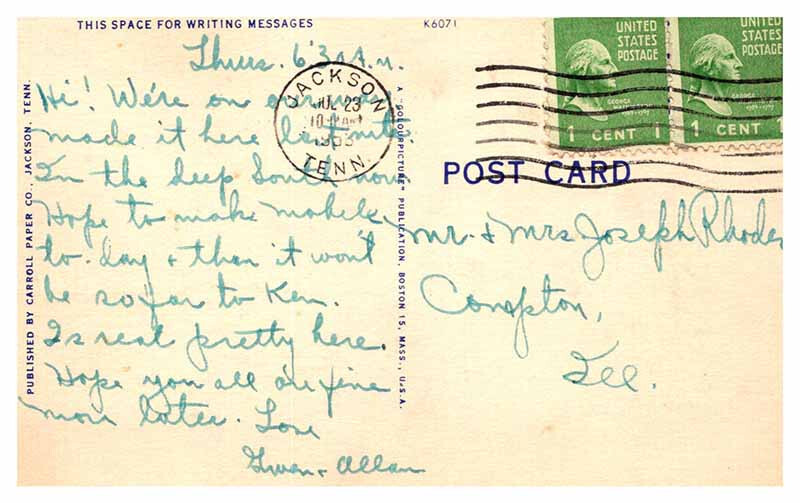 THIS SPACE FOR WRITING MESSAGES
K6071
Thurs. 6:30 A.M.
Hi! We're on our way
made it here last nite.
In the deep South now
Hope to make Mobile
to-day + then it won't
be so far to Ken.
Is real pretty here.
Hope you all are fine
more later. Love
Gwen + Allan
PUBLISHED BY CARROLL PAPER CO., JACKSON, TENN.
A "COLOURPICTURE" PUBLICATION, BOSTON 15, MASS., U.S.A.
JACKSON
JUL 23
1953
TENN.
UNITED
STATES
POSTAGE
GEORGE
1 CENT 1
UNITED
STATES
POSTAGE
GEORGE
1 CENT 1
POST CARD
Mr. + Mrs Joseph Rhodes
Compton,
Ill.